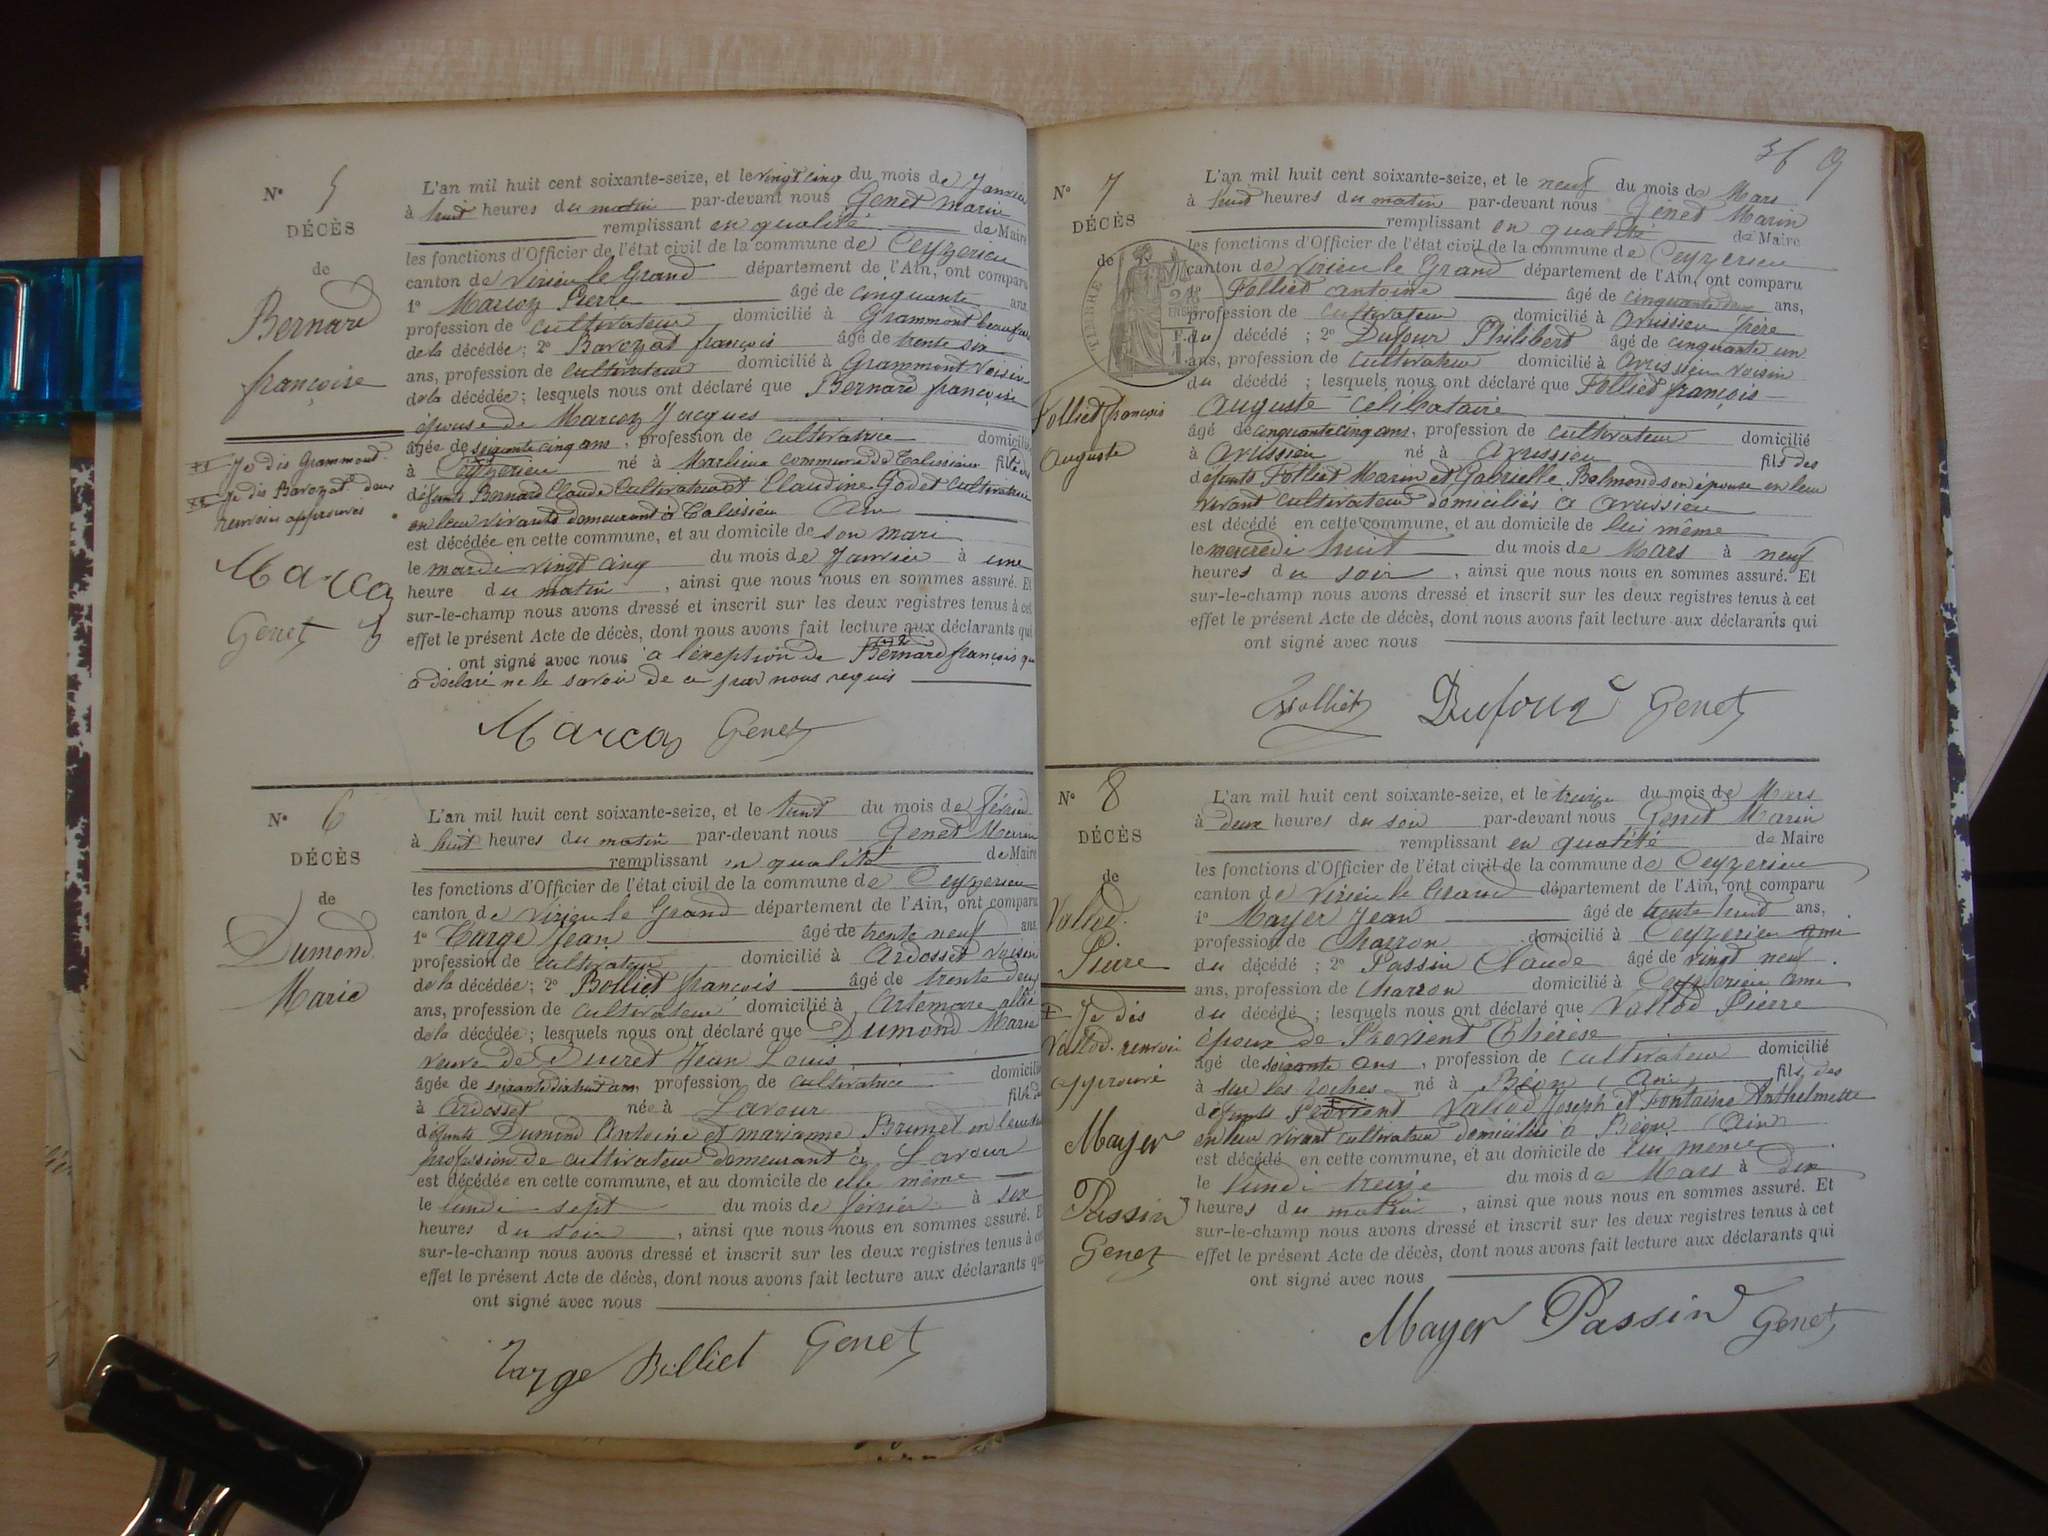 N° 5
DÉCÈS
de
Bernard
françoise
++ Je dis Grammont.
++ Je dis Barozat deux
renvois approuvés
Marcoz
Genet
L'an mil huit cent soixante-seize, et le vingt cinq du mois de Janvier
à huit heures du matin par-devant nous Genet Marin
remplissant en qualité de Maire
les fonctions d'Officier de l'état civil de la commune de Ceyzerieu
canton de Virieu le Grand département de l'Ain, ont comparu
1° Marcoz Pierre âgé de cinquante ans,
profession de cultivateur domicilié à Grammont beaufrère
de la décédée; 2° Barozat françois âgé de trente six
ans, profession de cultivateur domicilié à Grammont voisin
de la décédée; lesquels nous ont déclaré que Bernard françoise
épouse de Marcoz Jacques
âgée de soixante cinq ans, profession de cultivatrice domicilié
à Ceyzerieu né à Marlieux commune de Talissieu fille des
défunts Bernard Claude Cultivateur et Claudine Godet cultivatrice
en leur vivants demeurant à Talissieu Ain
est décédée en cette commune, et au domicile de son mari
le mardi vingt cinq du mois de Janvier à une
heure du matin, ainsi que nous nous en sommes assuré. Et
sur-le-champ nous avons dressé et inscrit sur les deux registres tenus à cet
effet le présent Acte de décès, dont nous avons fait lecture aux déclarants qui
ont signé avec nous à l'éxeption de Bernard françois qui
a déclaré ne le savoir de ce par nous requis
Marcoz Genet
N° 6
DÉCÈS
de
Dumond
Marie
L'an mil huit cent soixante-seize, et le huit du mois de février
à huit heures du matin par-devant nous Genet Marin
remplissant en qualité de Maire
les fonctions d'Officier de l'état civil de la commune de Ceyzerieu
canton de Virieu le Grand département de l'Ain, ont comparu
1° Targe Jean âgé de trente neuf ans
profession de cultivateur domicilié à Ardosset voisin
de la décédée; 2° Bolliet françois âgé de trente deux
ans, profession de cultivateur domicilié à Artemare allié
de la décédée; lesquels nous ont déclaré que Dumond Marie
veuve de Ducret Jean Louis
âgée de soixante dix huit ans profession de cultivatrice domicilié
à Ardosset née à Lavour fille de
défunts Dumond Antoine et marianne Brunet en leur
profession de cultivateur demeurant à Lavour
est décédée en cette commune, et au domicile de elle même
le lundi sept du mois de février à six
heures du soir, ainsi que nous nous en sommes assuré. Et
sur-le-champ nous avons dressé et inscrit sur les deux registres tenus à cet
effet le présent Acte de décès, dont nous avons fait lecture aux déclarants qui
ont signé avec nous
Targe Bolliet Genet
36 9
N° 7
DÉCÈS
de
TIMBRE
Folliet françois
Auguste
L'an mil huit cent soixante-seize, et le neuf du mois de Mars
à huit heures du matin par-devant nous Genet Marin
remplissant en qualité de Maire
les fonctions d'Officier de l'état civil de la commune de Ceyzerieu
canton de Virieu le Grand département de l'Ain, ont comparu
1° Folliet antoine âgé de cinquante deux ans,
profession de cultivateur domicilié à Avrissieu frère
du décédé; 2° Dufour Philibert âgé de cinquante un
ans, profession de cultivateur domicilié à Avrissieu voisin
du décédé; lesquels nous ont déclaré que Folliet françois
Auguste célibataire
âgé de cinquante cinq ans, profession de cultivateur domicilié
à Avrissieu né à Avrissieu fils des
défunts Folliet Marin et Gabrielle Balmond son épouse en leur
vivant cultivateur domiciliés à Avrissieu
est décédé en cette commune, et au domicile de lui même
le mercredi huit du mois de Mars à neuf
heures du soir, ainsi que nous nous en sommes assuré. Et
sur-le-champ nous avons dressé et inscrit sur les deux registres tenus à cet
effet le présent Acte de décès, dont nous avons fait lecture aux déclarants qui
ont signé avec nous
Folliet Dufour Genet
N° 8
DÉCÈS
de
Vallod
Pierre
+ Je dis
Vallod. renvoi
approuvé
Mayer
Passin
Genet
L'an mil huit cent soixante-seize, et le treize du mois de Mars
à deux heures du soir par-devant nous Genet Marin
remplissant en qualité de Maire
les fonctions d'Officier de l'état civil de la commune de Ceyzerieu
canton de Virieu le Grand département de l'Ain, ont comparu
1° Mayer Jean âgé de trente huit ans,
profession de Charron domicilié à Ceyzerieu ami
du décédé; 2° Passin Claude âgé de vingt neuf
ans, profession de Charron domicilié à Ceyzerieu ami
du décédé; lesquels nous ont déclaré que Vallod Pierre
époux de Provient Thérèse
âgé de soixante ans, profession de cultivateur domicilié
à sur les roches né à Béon (Ain) fils des
défunts Provient Vallod Joseph et Fontaine Anthelmette
en leur vivant cultivateur domiciliés à Béon (Ain)
est décédé en cette commune, et au domicile de lui même
le lundi treize du mois de Mars à dix
heures du matin, ainsi que nous nous en sommes assuré. Et
sur-le-champ nous avons dressé et inscrit sur les deux registres tenus à cet
effet le présent Acte de décès, dont nous avons fait lecture aux déclarants qui
ont signé avec nous
Mayer Passin Genet